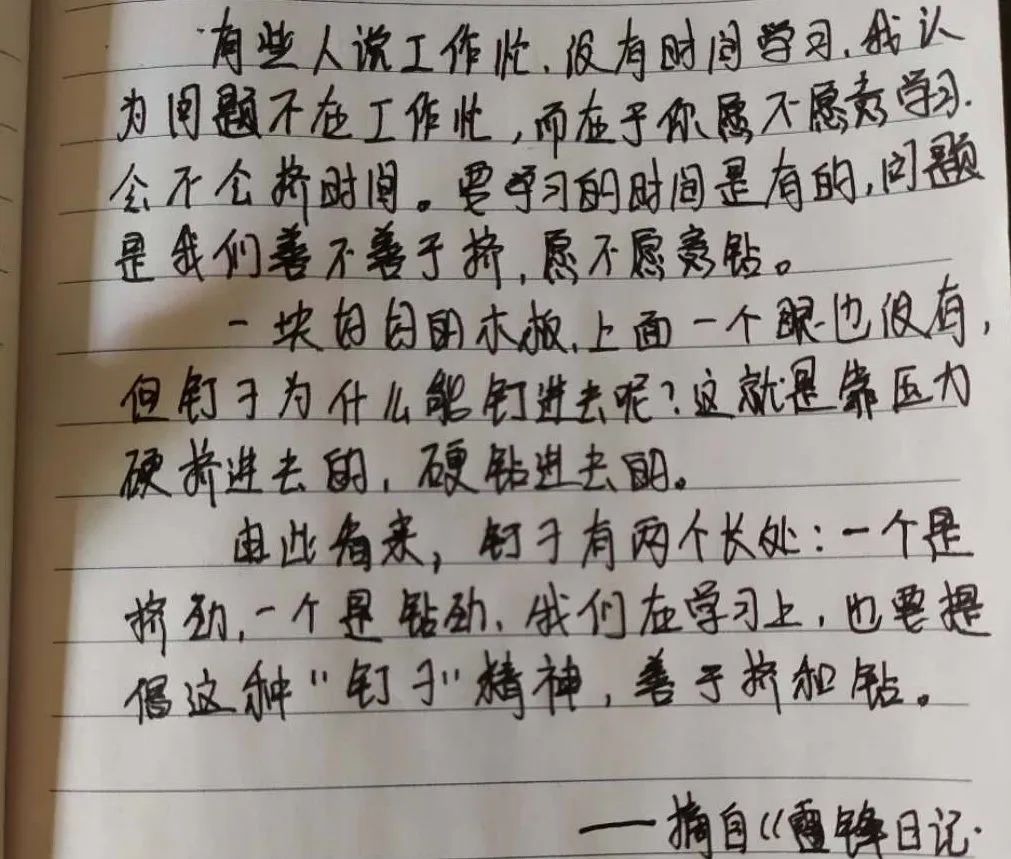 有些人说工作忙、没有时间学习,我认
为问题不在工作忙,而在于你愿不愿意学习.
会不会挤时间。要学习的时间是有的,问题
是我们善不善于挤,愿不愿意钻。
一块好好的木板,上面一个眼也没有,
但钉子为什么能钉进去呢?这就是靠压力
硬挤进去的,硬钻进去的。
由此看来,钉子有两个长处:一个是
挤劲,一个是钻劲、我们在学习上,也要提
倡这种“钉子”精神,善于挤和钻。
——摘自《雷锋日记